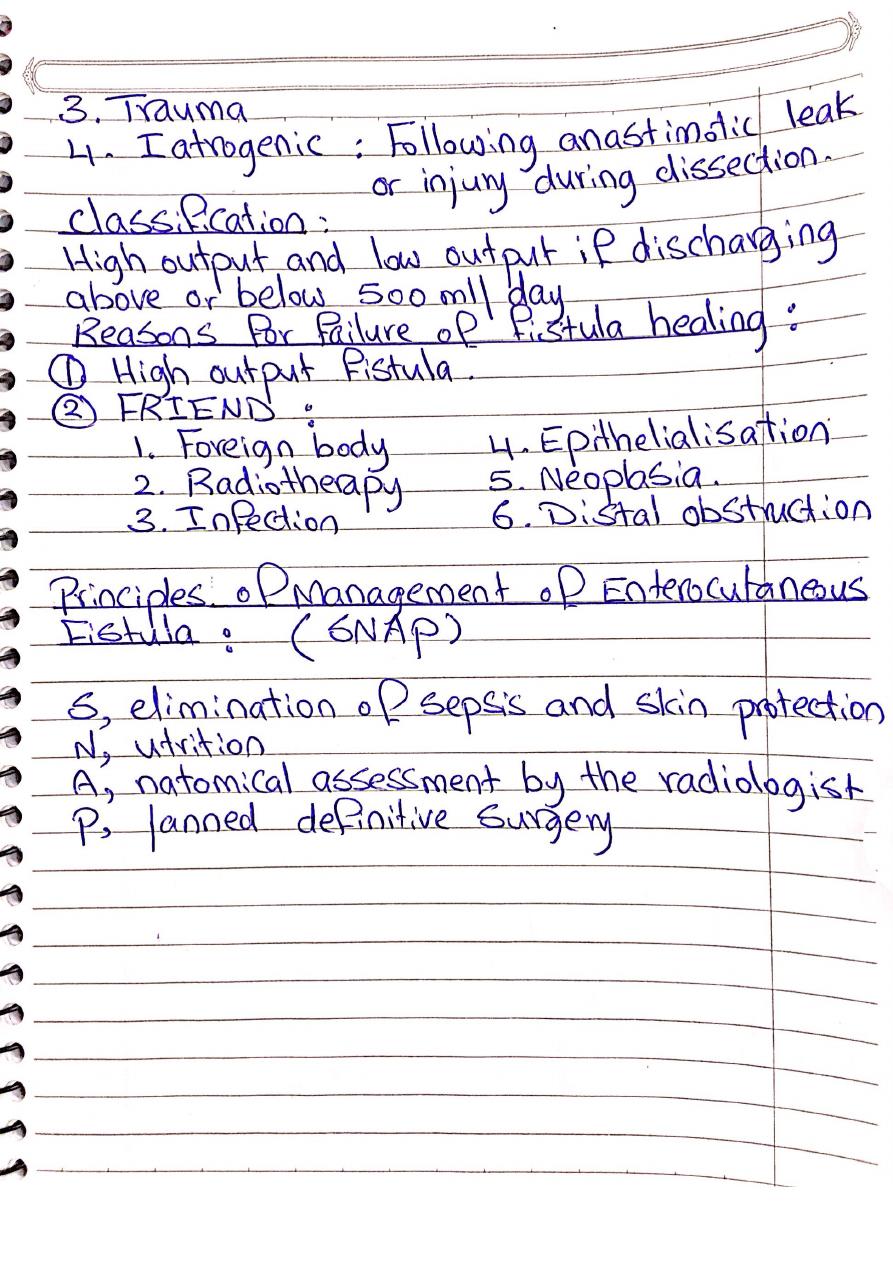 3. Trauma
4. Iatrogenic : Following anastimotic leak
or injury during dissection.
Classification :
High output and low output if discharging
above or below 500 ml/ day
Reasons for failure of fistula healing :
① High output fistula.
② FRIEND :
1. Foreign body 4. Epithelialisation
2. Radiotherapy 5. Neoplasia.
3. Infection 6. Distal obstruction
Principles of Management of Enterocutaneous
Fistula : (SNAP)
S, elimination of sepsis and skin protection
N, utrition
A, natomical assessment by the radiologist
P, lanned definitive surgery